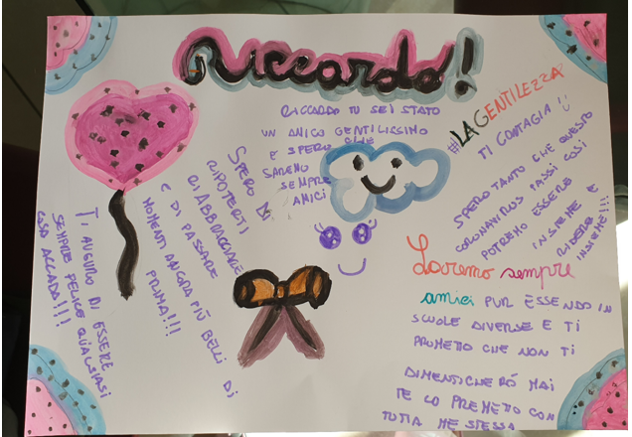 Riccardo!
RICCARDO TU SEI STATO
UN AMICO GENTILISSIMO
E SPERO CHE
SAREMO
SEMPRE
AMICI
#LA GENTILEZZA
TI CONTAGIA!!
SPERO TANTO CHE QUESTO
CORONAVIRUS PASSI COSÌ
POTREMO ESSERE
INSIEME E
RIDERE
INSIEME!!!
SPERO DI
RIPOTERTI
RIABBRACCIARE
E DI PASSARE
MOMENTI ANCORA PIÙ BELLI DI
PRIMA!!!
TI AUGURO DI ESSERE
SEMPRE FELICE QUALSIASI
COSA ACCADA!!!
Saremo sempre
amici PUR ESSENDO IN
SCUOLE DIVERSE E TI
PROMETTO CHE NON TI
DIMENTICHERÒ MAI
TE LO PREMETTO CON
TUTTA ME STESSA